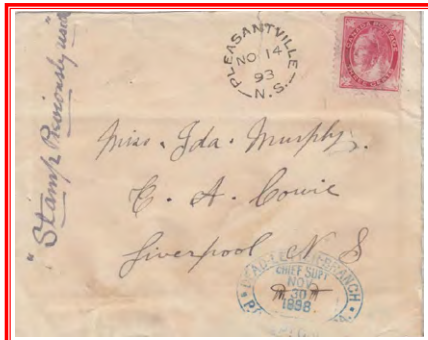 "Stamp Previously used"
PLEASANTVILLE
NO 14
93
N.S.
Miss. Ida. Murphy.
C. A. Cowie
Liverpool N S
DEAD LETTER BRANCH
CHIEF SUPT
NOV
30
1898